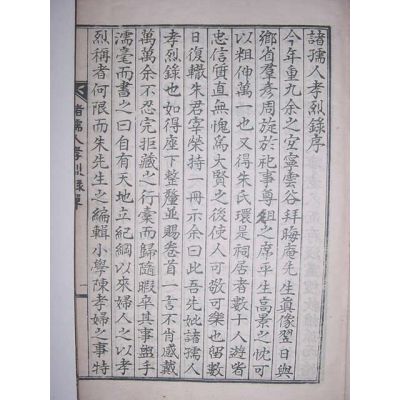 諸孺人孝烈錄序
今年重九余之安寧雲谷拜晦庵先生眞像翌日與
鄉省羣彥周旋於祀事尊俎之席平生高景之忱可
以粗伸萬一也又得朱氏環是祠居者數十人遊省
忠信質直無愧爲大賢之後使人可敬可樂也留數
日復轍朱君宰榮持一冊示余曰此吾先妣諸孺人
孝烈錄也如得座下整釐並賜卷首一言不肖感戴
萬萬余不忍完拒藏之行橐而歸隨暇卒其事盥手
濡毫而書之曰自有天地立紀綱以來婦人之以孝
烈稱者何限而朱先生之編輯小學陳孝婦之事特
諸孺人孝烈錄單
一